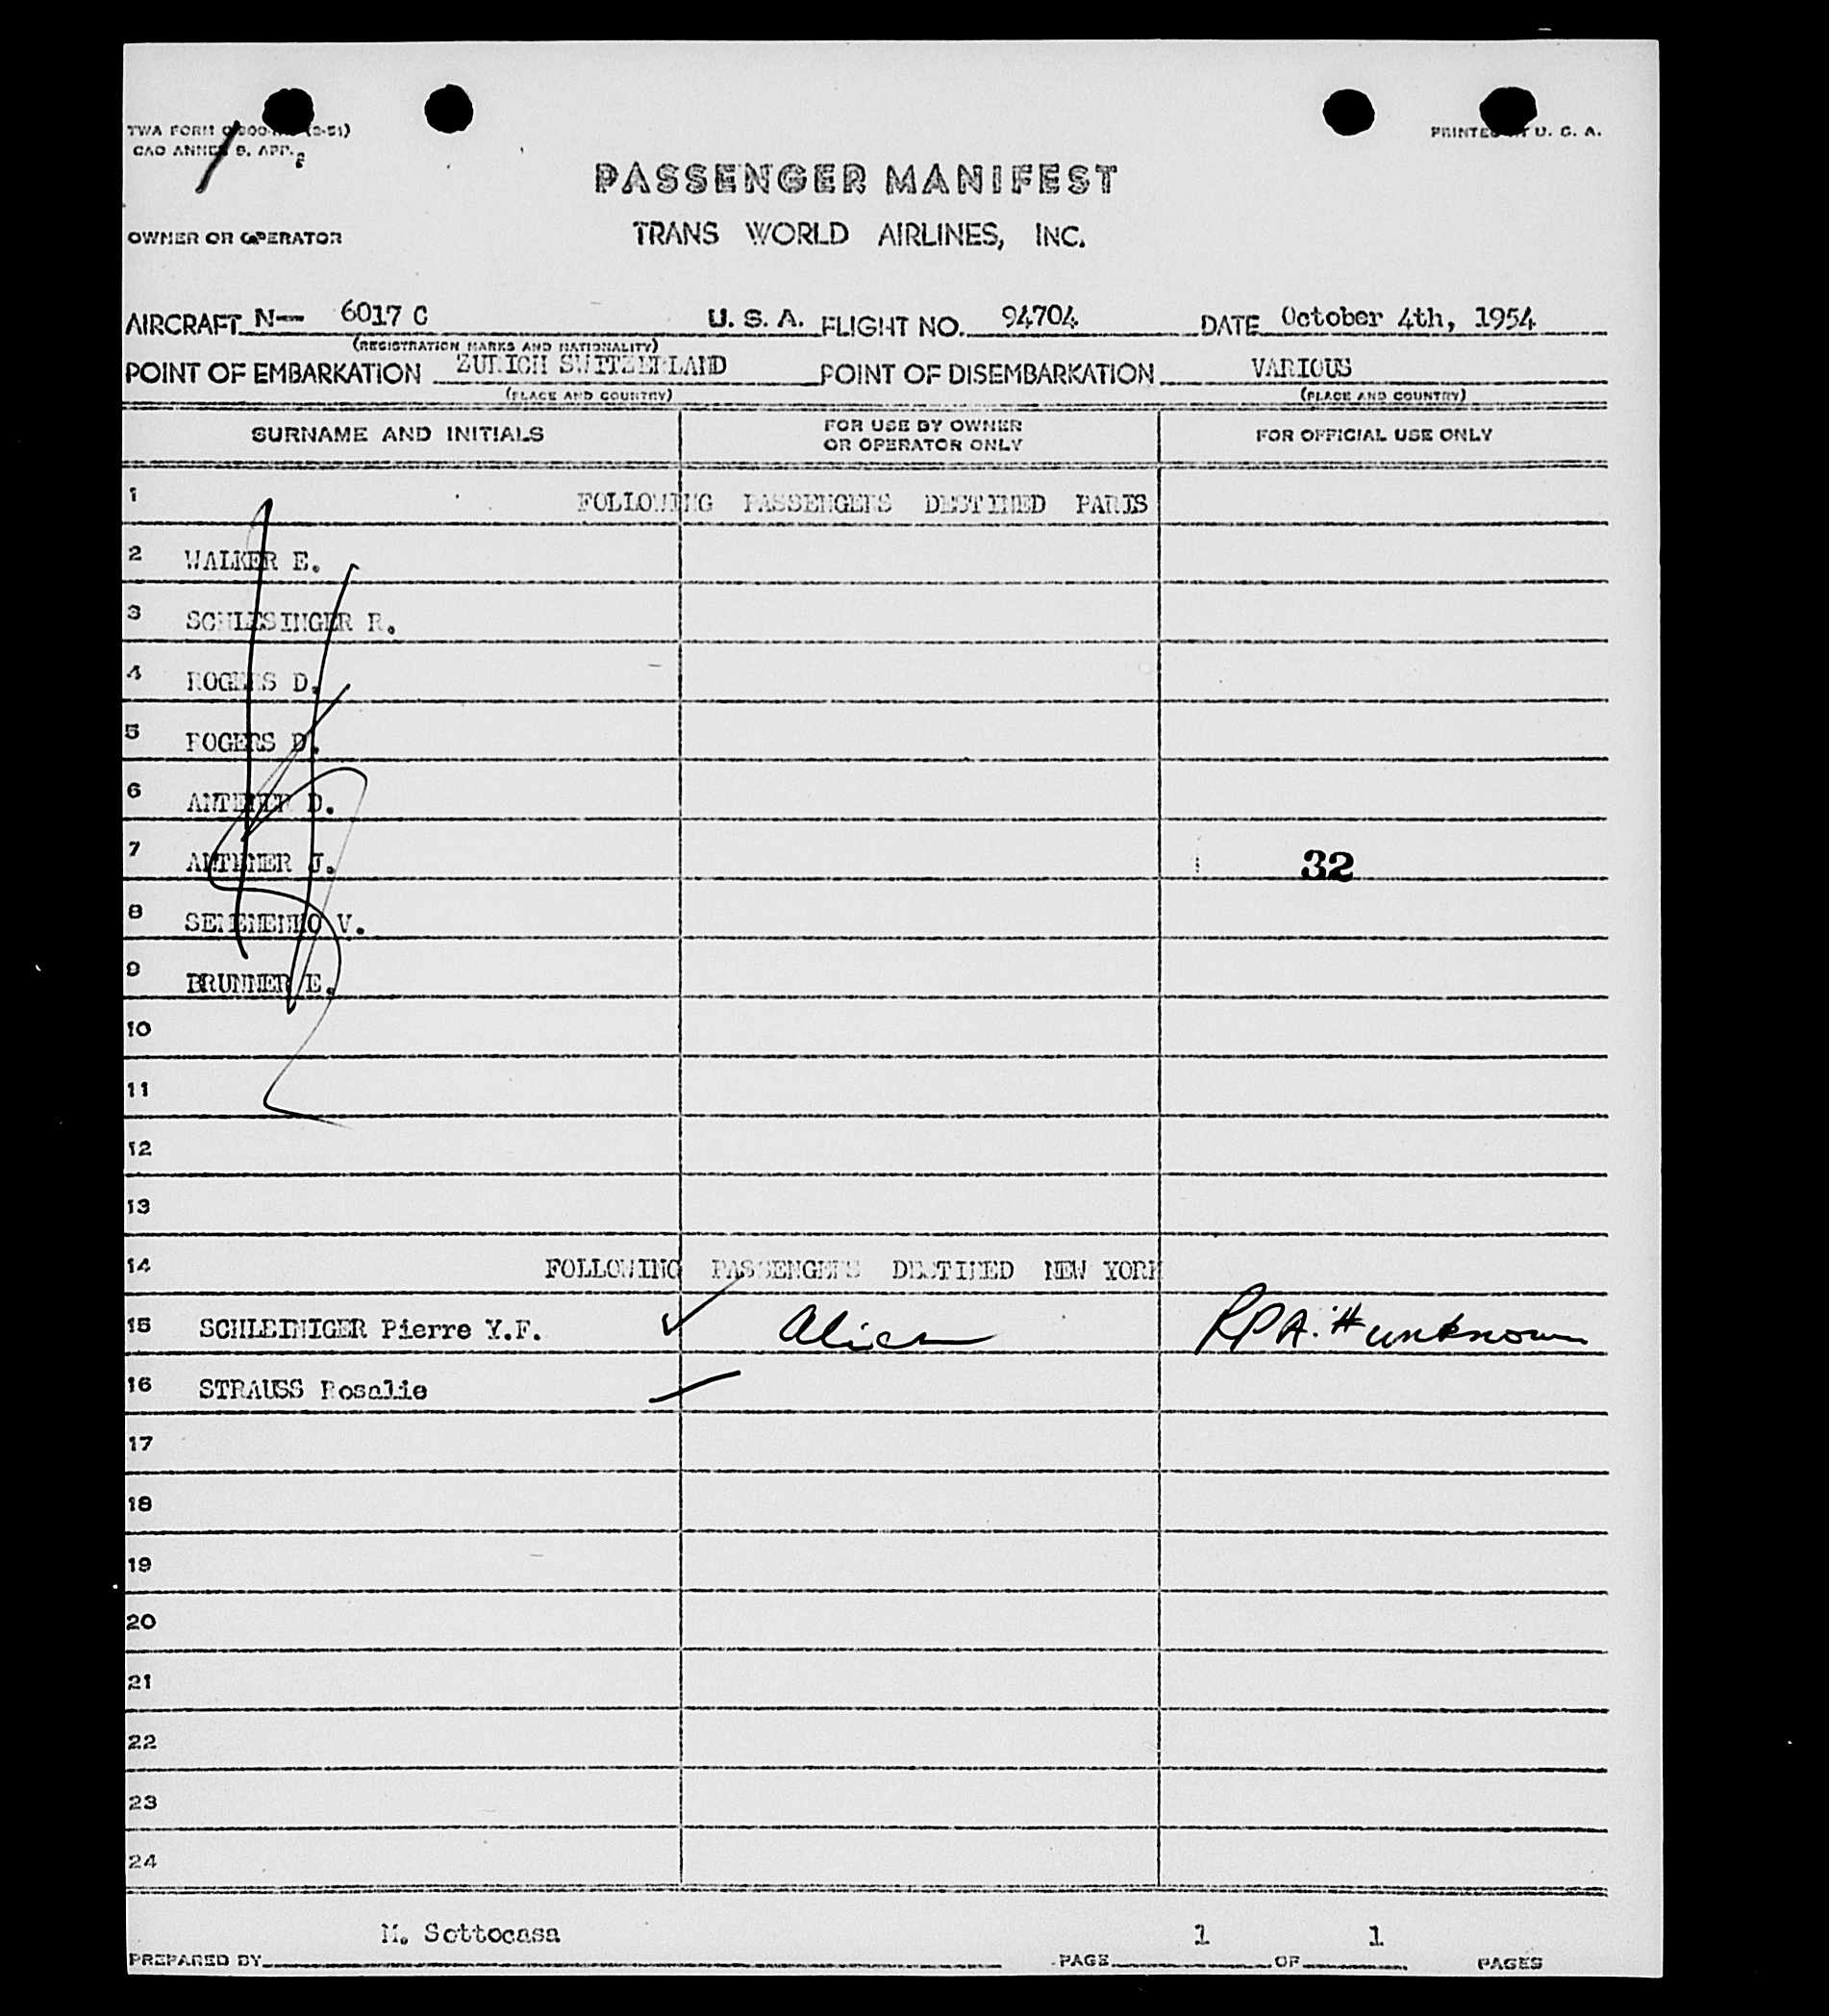 TWA FORM (3-51)
CAO ANNEX 9, APP. 2
PRINTED IN U. S. A.
PASSENGER MANIFEST
OWNER OR OPERATOR TRANS WORLD AIRLINES, INC.
AIRCRAFT N-- 6017 C U. S. A. FLIGHT NO. 94704 DATE October 4th, 1954
(REGISTRATION MARKS AND NATIONALITY)
POINT OF EMBARKATION ZURICH SWITZERLAND POINT OF DISEMBARKATION VARIOUS
(PLACE AND COUNTRY) (PLACE AND COUNTRY)
SURNAME AND INITIALS FOR USE BY OWNER OR OPERATOR ONLY FOR OFFICIAL USE ONLY
1 FOLLOWING PASSENGERS DESTINED PARIS
2 WALKER E.
3 SCHLESINGER R.
4 ROGERS D.
5 ROGERS D.
6 ANTENER D.
7 ANTENER J. 32
8 SEMENENKO V.
9 BRUNNER E.
10
11
12
13
14 FOLLOWING PASSENGERS DESTINED NEW YORK
15 SCHLEINIGER Pierre Y.F. ✓ Alien RPA: # unknown
16 STRAUSS Rosalie
17
18
19
20
21
22
23
24
PREPARED BY M. Sottocasa PAGE 1 OF 1 PAGES